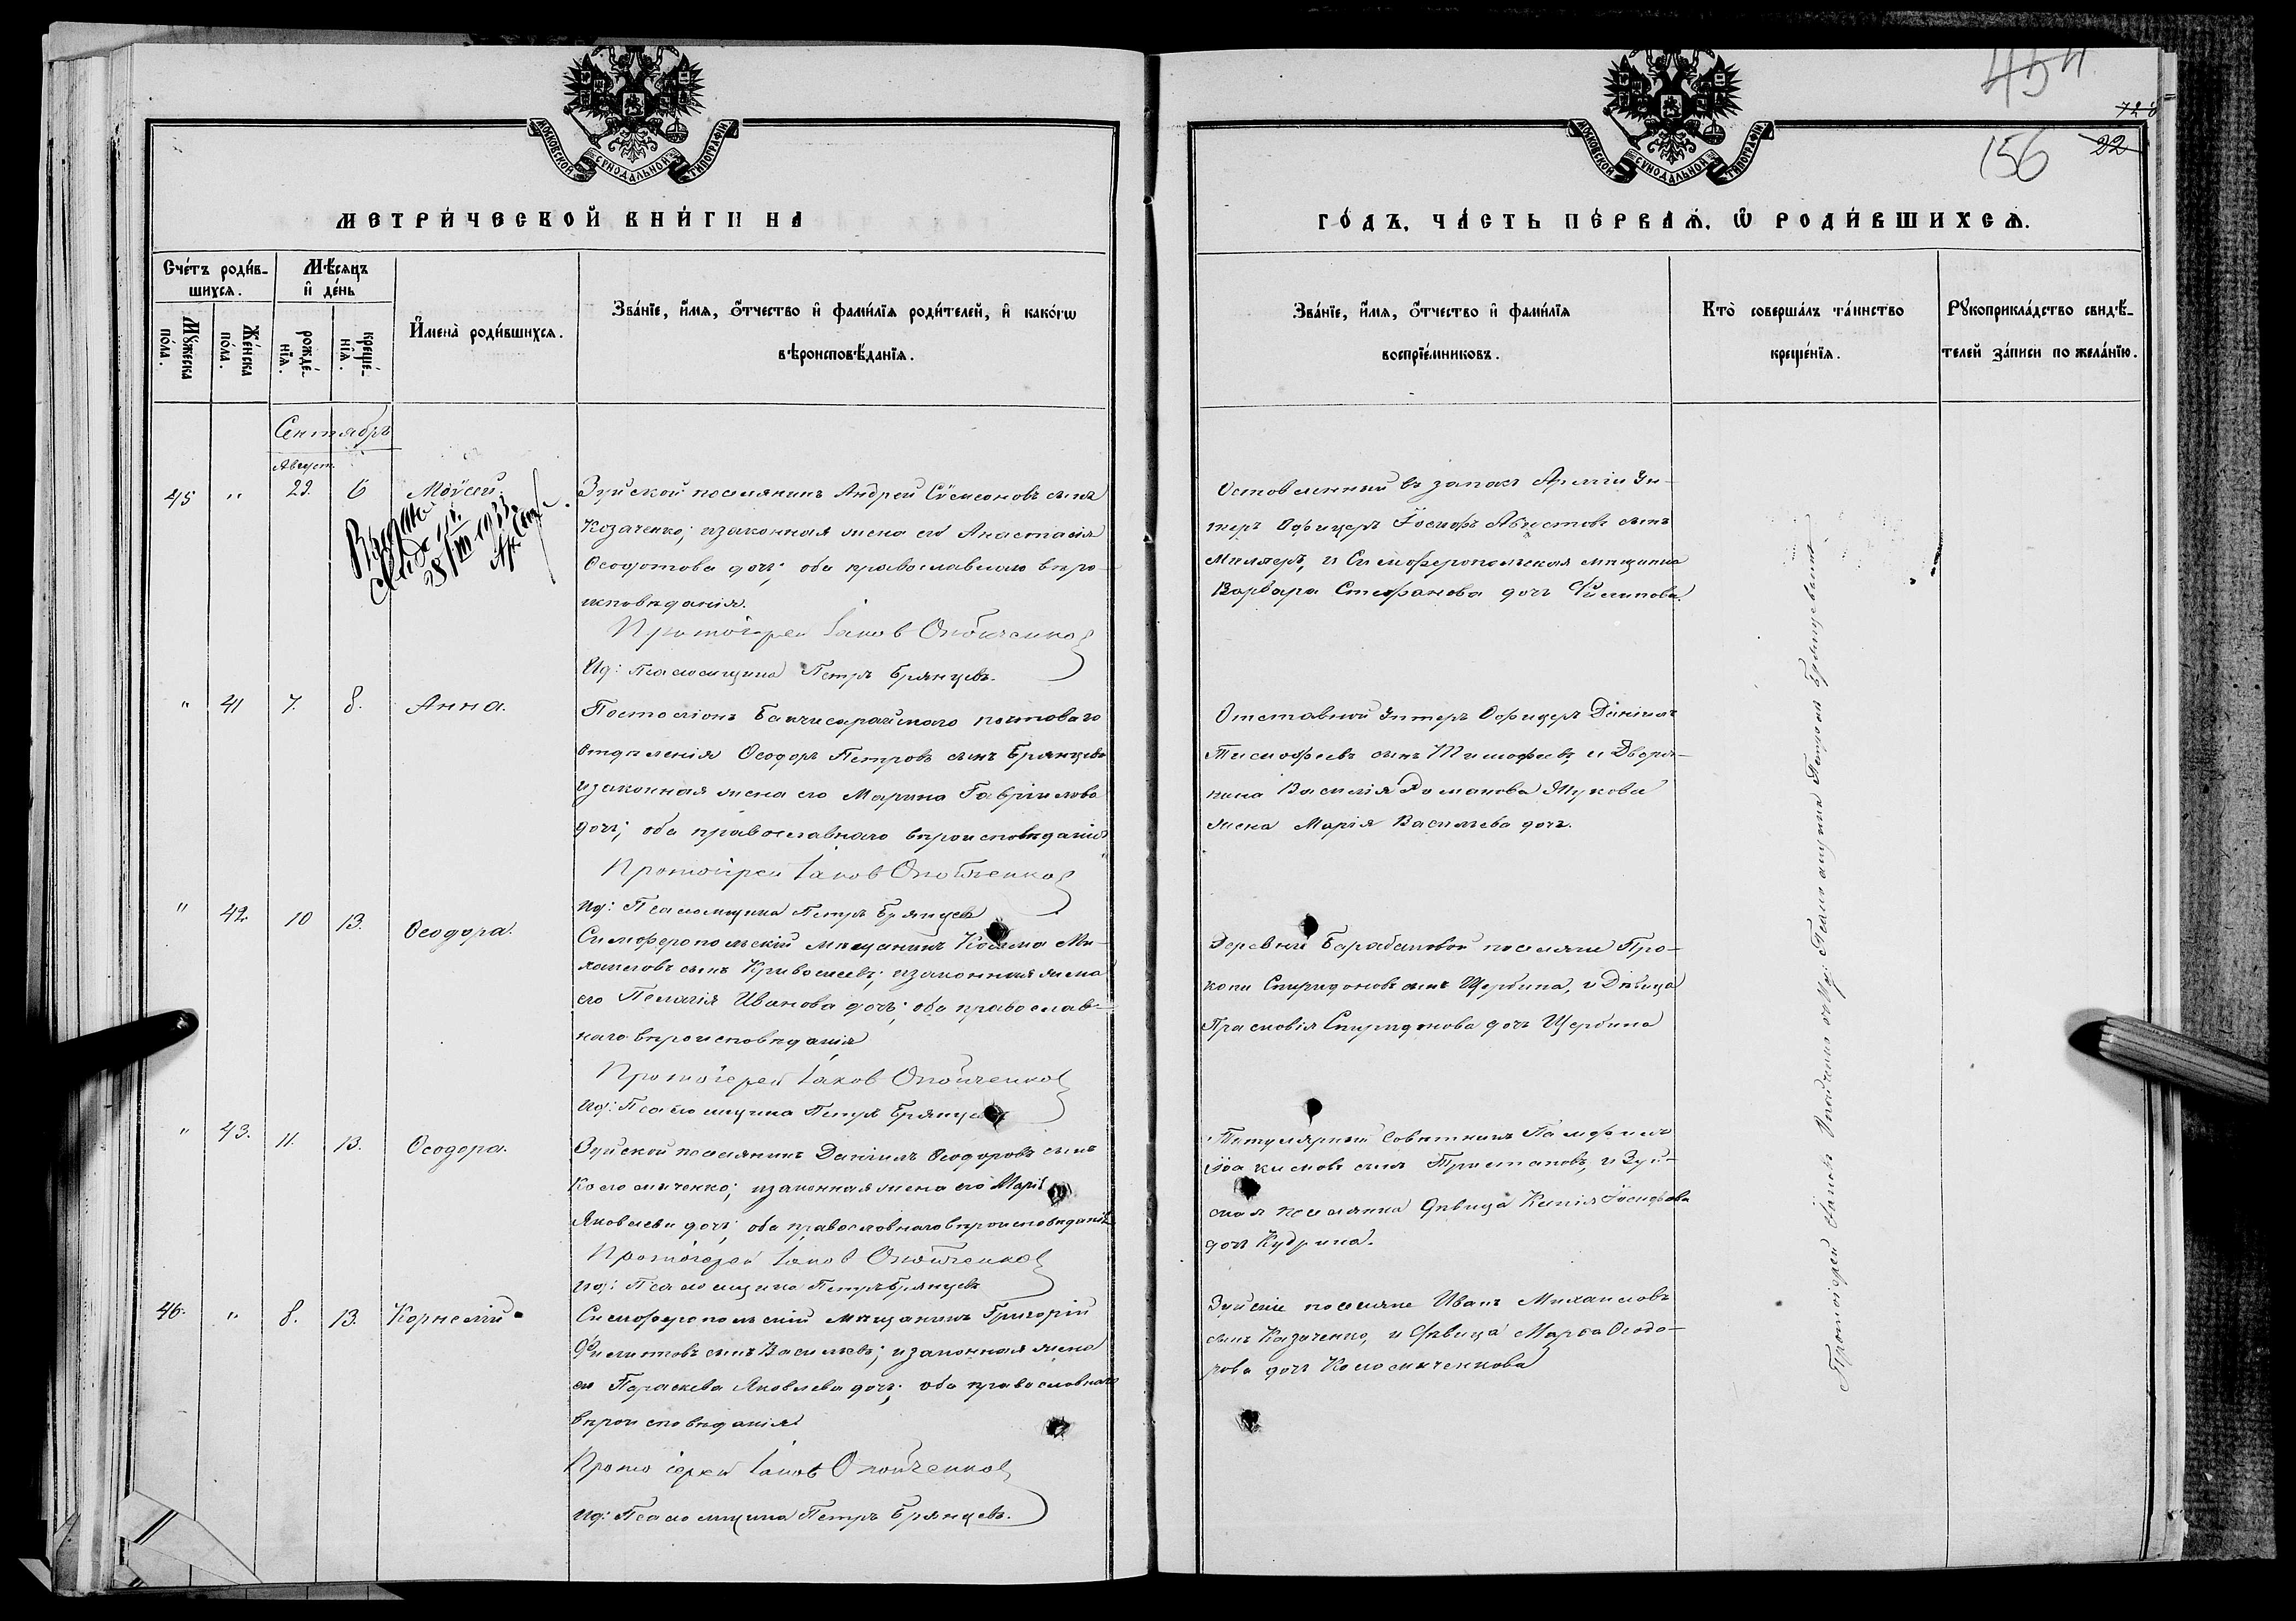 МОСКОВСКОЙ СѴНОДАЛЬНОЙ ТИПОГРАФІИ
МЕТРИ́ЧЕСКОЙ КНИ́ГИ НА
Сче́тъ роди́в-
шихсѧ.
Мѣ́сѧцъ
и҆ де́нь
Мꙋ́жеска
по́ла.
Же́нска
по́ла.
рожде́-
нїѧ.
креще́-
нїѧ.
И҆мена̀ роди́вшихсѧ.
Зва́нїе, и҆́мѧ, ѻ҆́тчество и҆ фами́лїѧ роди́телей, и҆ како́гѡ
вѣроисповѣ́данїѧ.
Сентябрь
Август.
45 " 29. 6 Мойсей.
Зуйской поселянинъ Андрей Сѵмеоновъ сынъ
Козаченко; изаконная жена его Анастасія
Ѳеодотова дочь; оба православнаго вѣро-
исповѣданія.
Протоіерей Іаков
Ид: Псаломщика Петръ Брянцевъ.
" 41 7. 8. Анна.
Бахчисарайскаго почтоваго
отдѣленія Ѳеодоръ Петровъ сынъ Брянцевъ
изаконная жена его Марина Гавріилова
дочь; оба православнаго вѣроисповѣданія
Протоіерей Іаков
Ид: Псаломщика Петръ Брянцевъ
" 42. 10 13. Ѳеодора.
Симферопольскій мѣщанинъ Козьма Ми-
хаиловъ сынъ изаконная жена
его Пелагія Иванова дочь; оба православ-
наго вѣроисповѣданія
Протоіерей Іаков
Ид: Псаломщика Петръ Брянцевъ
" 43. 11. 13. Ѳеодора.
Зуйской поселянинъ Даніилъ Ѳеодоровъ сынъ
Коломыченко; изаконная жена его Марія
Яковлева дочь; оба православнаго вѣроисповѣданія
Протоіерей Іаков
Ид: Псаломщика Петръ Брянцевъ
46. " 8. 13. Корнелій
Симферопольскій мѣщанинъ Григорій
Филиповъ сынъ Васильевъ; изаконная жена
его Параскева Яковлева дочь; оба православнаго
вѣроисповѣданія
Протоіерей Іаков
Ид: Псаломщика Петръ Брянцевъ.
МОСКОВСКОЙ СѴНОДАЛЬНОЙ ТИПОГРАФІИ
156
22
ГО́ДЪ, ЧА́СТЬ ПЕ́РВАѦ, Ѡ҆ РОДИ́ВШИХСѦ.
Зва́нїе, и҆́мѧ, ѻ҆́тчество и҆ фами́лїѧ
воспрїе́мниковъ.
Кто̀ соверша́лъ та́инство
креще́нїѧ.
Рꙋкоприкла́дство свидѣ́-
телей за́писи по жела́нїю.
въ запасъ Арміи Ун-
теръ Офицеръ Іосифъ Августовъ сынъ
Миллеръ, и Симферопольская мѣщанка
Варвара Стефанова дочь Филипова.
Отставной Унтеръ Офицеръ Даніилъ
Тимофеевъ сынъ Тимофеевъ, и Дворя-
нина Василія Романова Жукова
жена Марія Васильева дочь.
Деревни поселяне Про-
копи Спиридоновъ сынъ Щербина, и Дѣвица
Прасковія Спиридонова дочь Щербина
Титулярный Совѣтникъ Памфилъ
Іоакимовъ сынъ и Зуй-
ская поселянка Дѣвица Ксенія Іосифова
дочь Кудрина.
Зуйскіе поселяне Иванъ Михаиловъ
сынъ Казаченко, и Дѣвица Марфа Ѳеодо-
рова дочь Коломыченкова
Протоіерей Іаковъ Псаломщика Петръ Брянцевъ